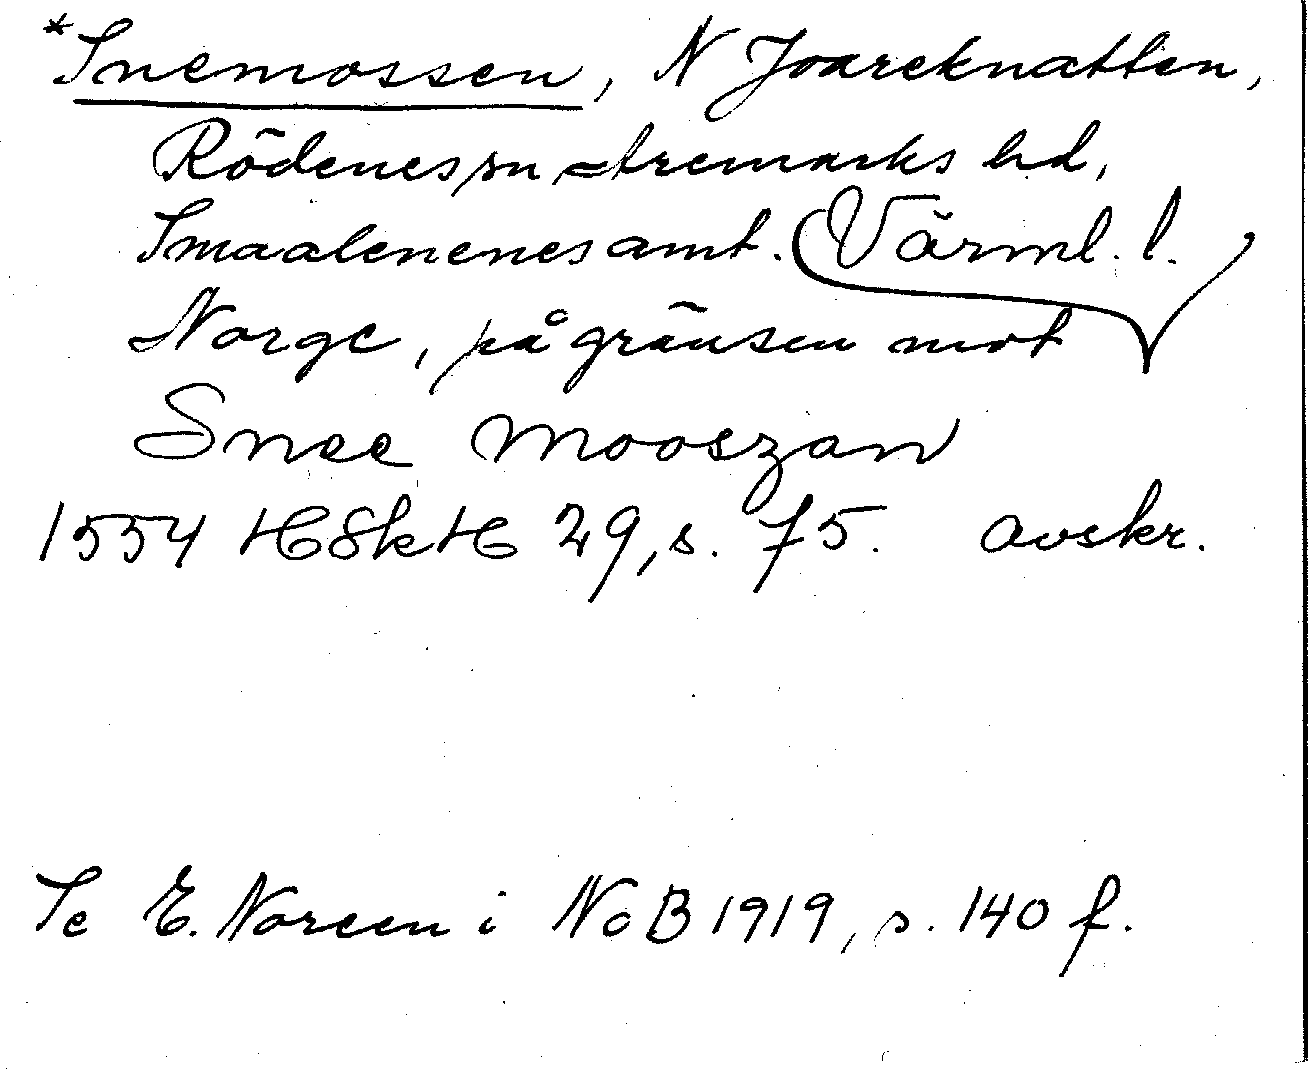 *Snemossen, N Joareknatten,
Rödenes sn, Aremarks hd,
Smaalenenes amt. Värml. l.
Norge, på gränsen mot
Snee Mooszan
1554 HSkH 29, s. 75. avskr.
Se E. Noreen i NoB 1919, s. 140 f.